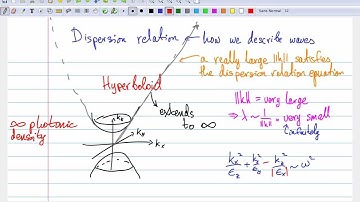 Sans Normal 12
Dispersion relation → how we describe waves
a really large ||k|| satisfies
the dispersion relation equation
Hyperboloid
extends
to ∞
∞ photonic
density
kz
ky
kx
||k|| = very large
⇒ λ ~ 1/||k|| = very small
infinitely
kx²/εz + ky²/εz - kz²/|εx| ~ ω²